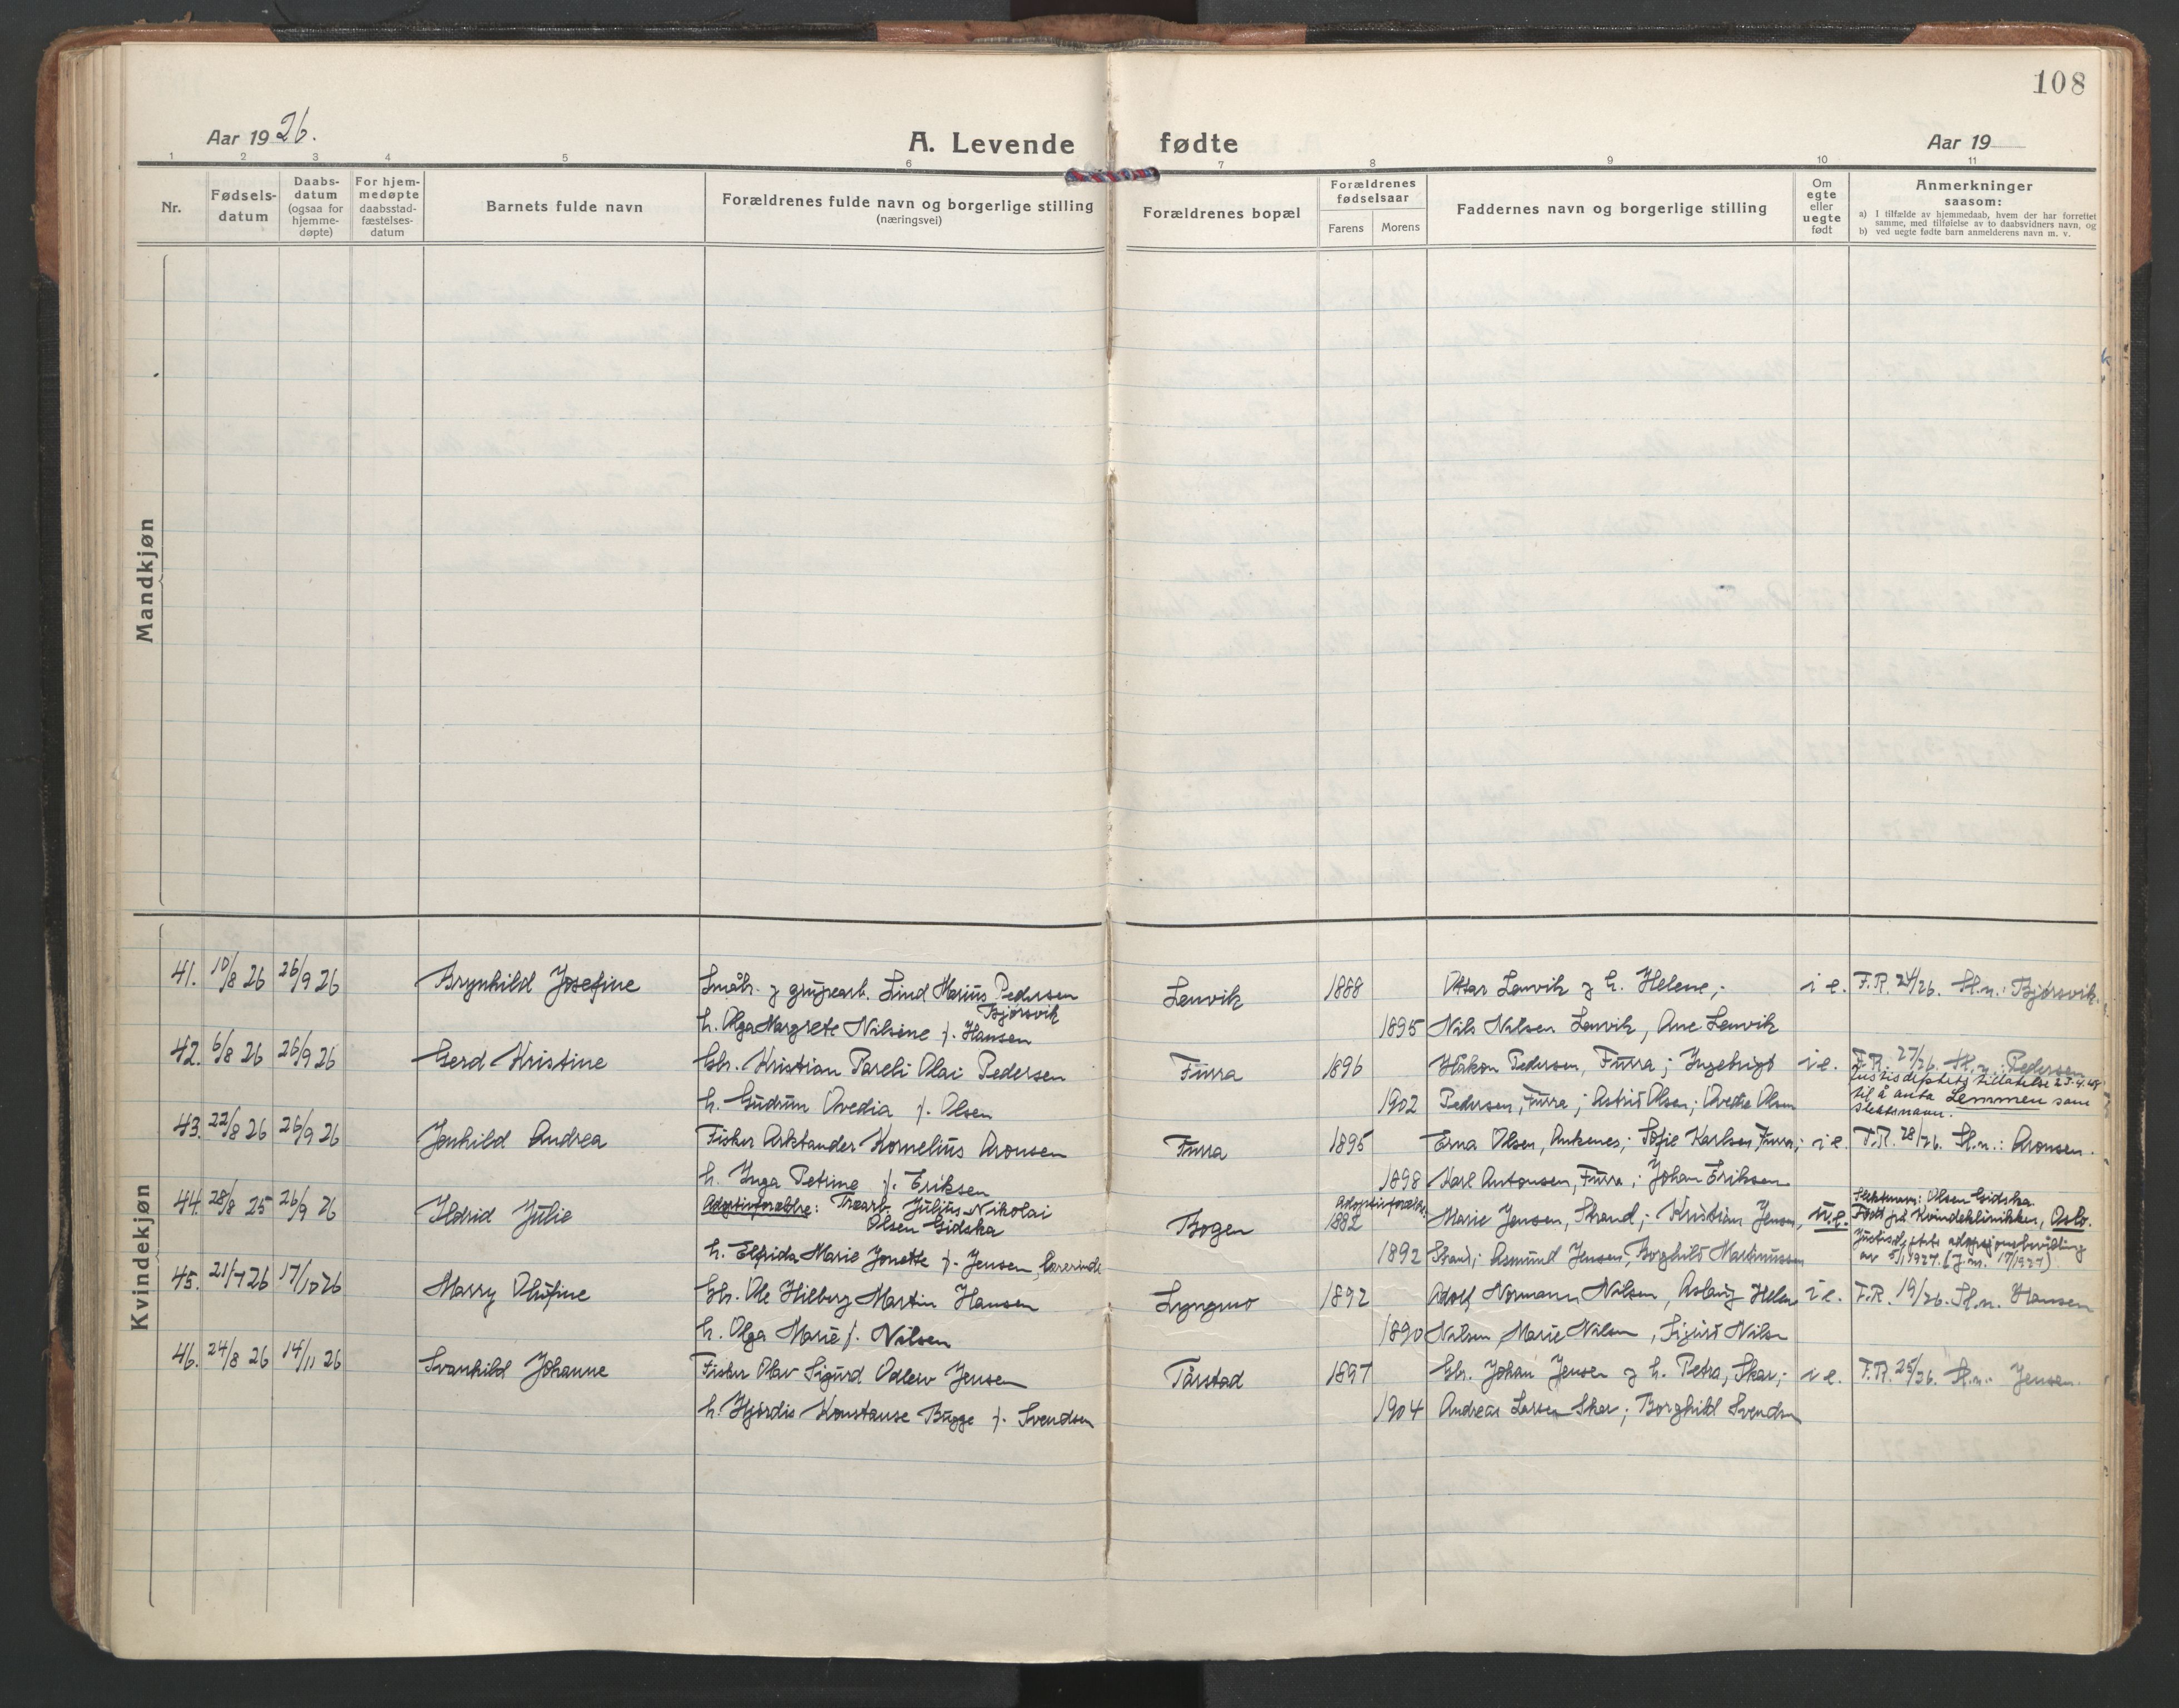 108
Aar 1926.
A. Levende fødte
Aar 19
1 2 3 4 5 6 7 8 9 10 11
Nr.
Fødsels-
datum
Daabs-
datum
(ogsaa for
hjemme-
døpte)
For hjem-
medøpte
daabsstad-
fæstelses-
datum
Barnets fulde navn
Forældrenes fulde navn og borgerlige stilling
(næringsvei)
Forældrenes bopæl
Forældrenes
fødselsaar
Farens Morens
Faddernes navn og borgerlige stilling
Om
egte
eller
uegte
født
Anmerkninger
saasom:
a) I tilfælde av hjemmedaab, hvem der har forrettet
samme, med tilføielse av to daabsvidners navn, og
b) ved uegte fødte barn anmelderens navn m. v.
Mandkjøn
Kvindekjøn
41. 10/8 26 26/9 26 Brynhild Josefine Småbr. og grubearb. Lind Marius Pedersen Lenvik 1888 Ottar Lenvik og h. Helene; i e. F.R. 24/26. Sl.n.: Bjørsvik.
Bjørsvik
h. Olga Margrete Nilsine f. Hansen 1895 Nils Nilsen Lenvik, Ane Lenvik
42. 6/8 26 26/9 26 Gerd Kristine Gbr. Kristian Pareli Olai Pedersen Furra 1896 Håkon Pedersen, Furra; Ingebrigt i e. F.R. 27/26. Sl.n.: Pedersen
Justisdeptets tillatelse 23-4-48
h. Gudrun Ovedia f. Olsen 1902 Pedersen, Furra; Astrid Olsen; Ovedie Olsen til å anta Lemmen som
slektsnavn.
43. 22/8 26 26/9 26 Jonhild Andrea Fisker Arktander Kornelius Aronsen Furra 1895 Erna Olsen, Ankenes; Sofie Karlsen Furra; i e. F.R. 28/26. Sl.n.: Aronsen.
h. Inga Petrine f. Eriksen 1898 Karl Antonsen, Furra; Johan Eriksen
44. 28/8 25 26/9 26 Ildrid Julie Adoptivforældre: Træarb. Julius Nikolai Bogen Adoptivforældr. 1882 Marie Jensen, Strand; Kristian Jensen, u.e. Slektsnavn: Olsen Gidska
Olsen Gidska Født på Kvindeklinikken, Oslo.
h. Elfrida Marie Jonette f. Jensen, lærerinde 1892 Strand; Asmund Jensen, Borghild Martinussen Justisdeptets adopsjonsbevilling
av 5/1 1927. (J.nr. 17/1927)
45. 21/7 26 17/10 26 Marry Olufine Gbr. Ole Hilberg Martin Hansen Lyngmo 1892 Adolf Normann Nilsen, Aslaug Helene i e. F.R. 19/26. Sl.n. Hansen
h. Olga Marie f. Nilsen 1890 Nilsen, Marie Nilsen, Sigurd Nilsen
46. 24/8 26 14/11 26 Svanhild Johanne Fisker Olav Sigurd Odleiv Jensen Tårstad 1897 Gbr. Johan Jensen og h. Petra, Skar; i e. F.R. 25/26. Sl.n. Jensen.
h. Hjørdis Konstanse Bugge f. Svendsen 1904 Andreas Larsen Skar; Borghild Svendsen